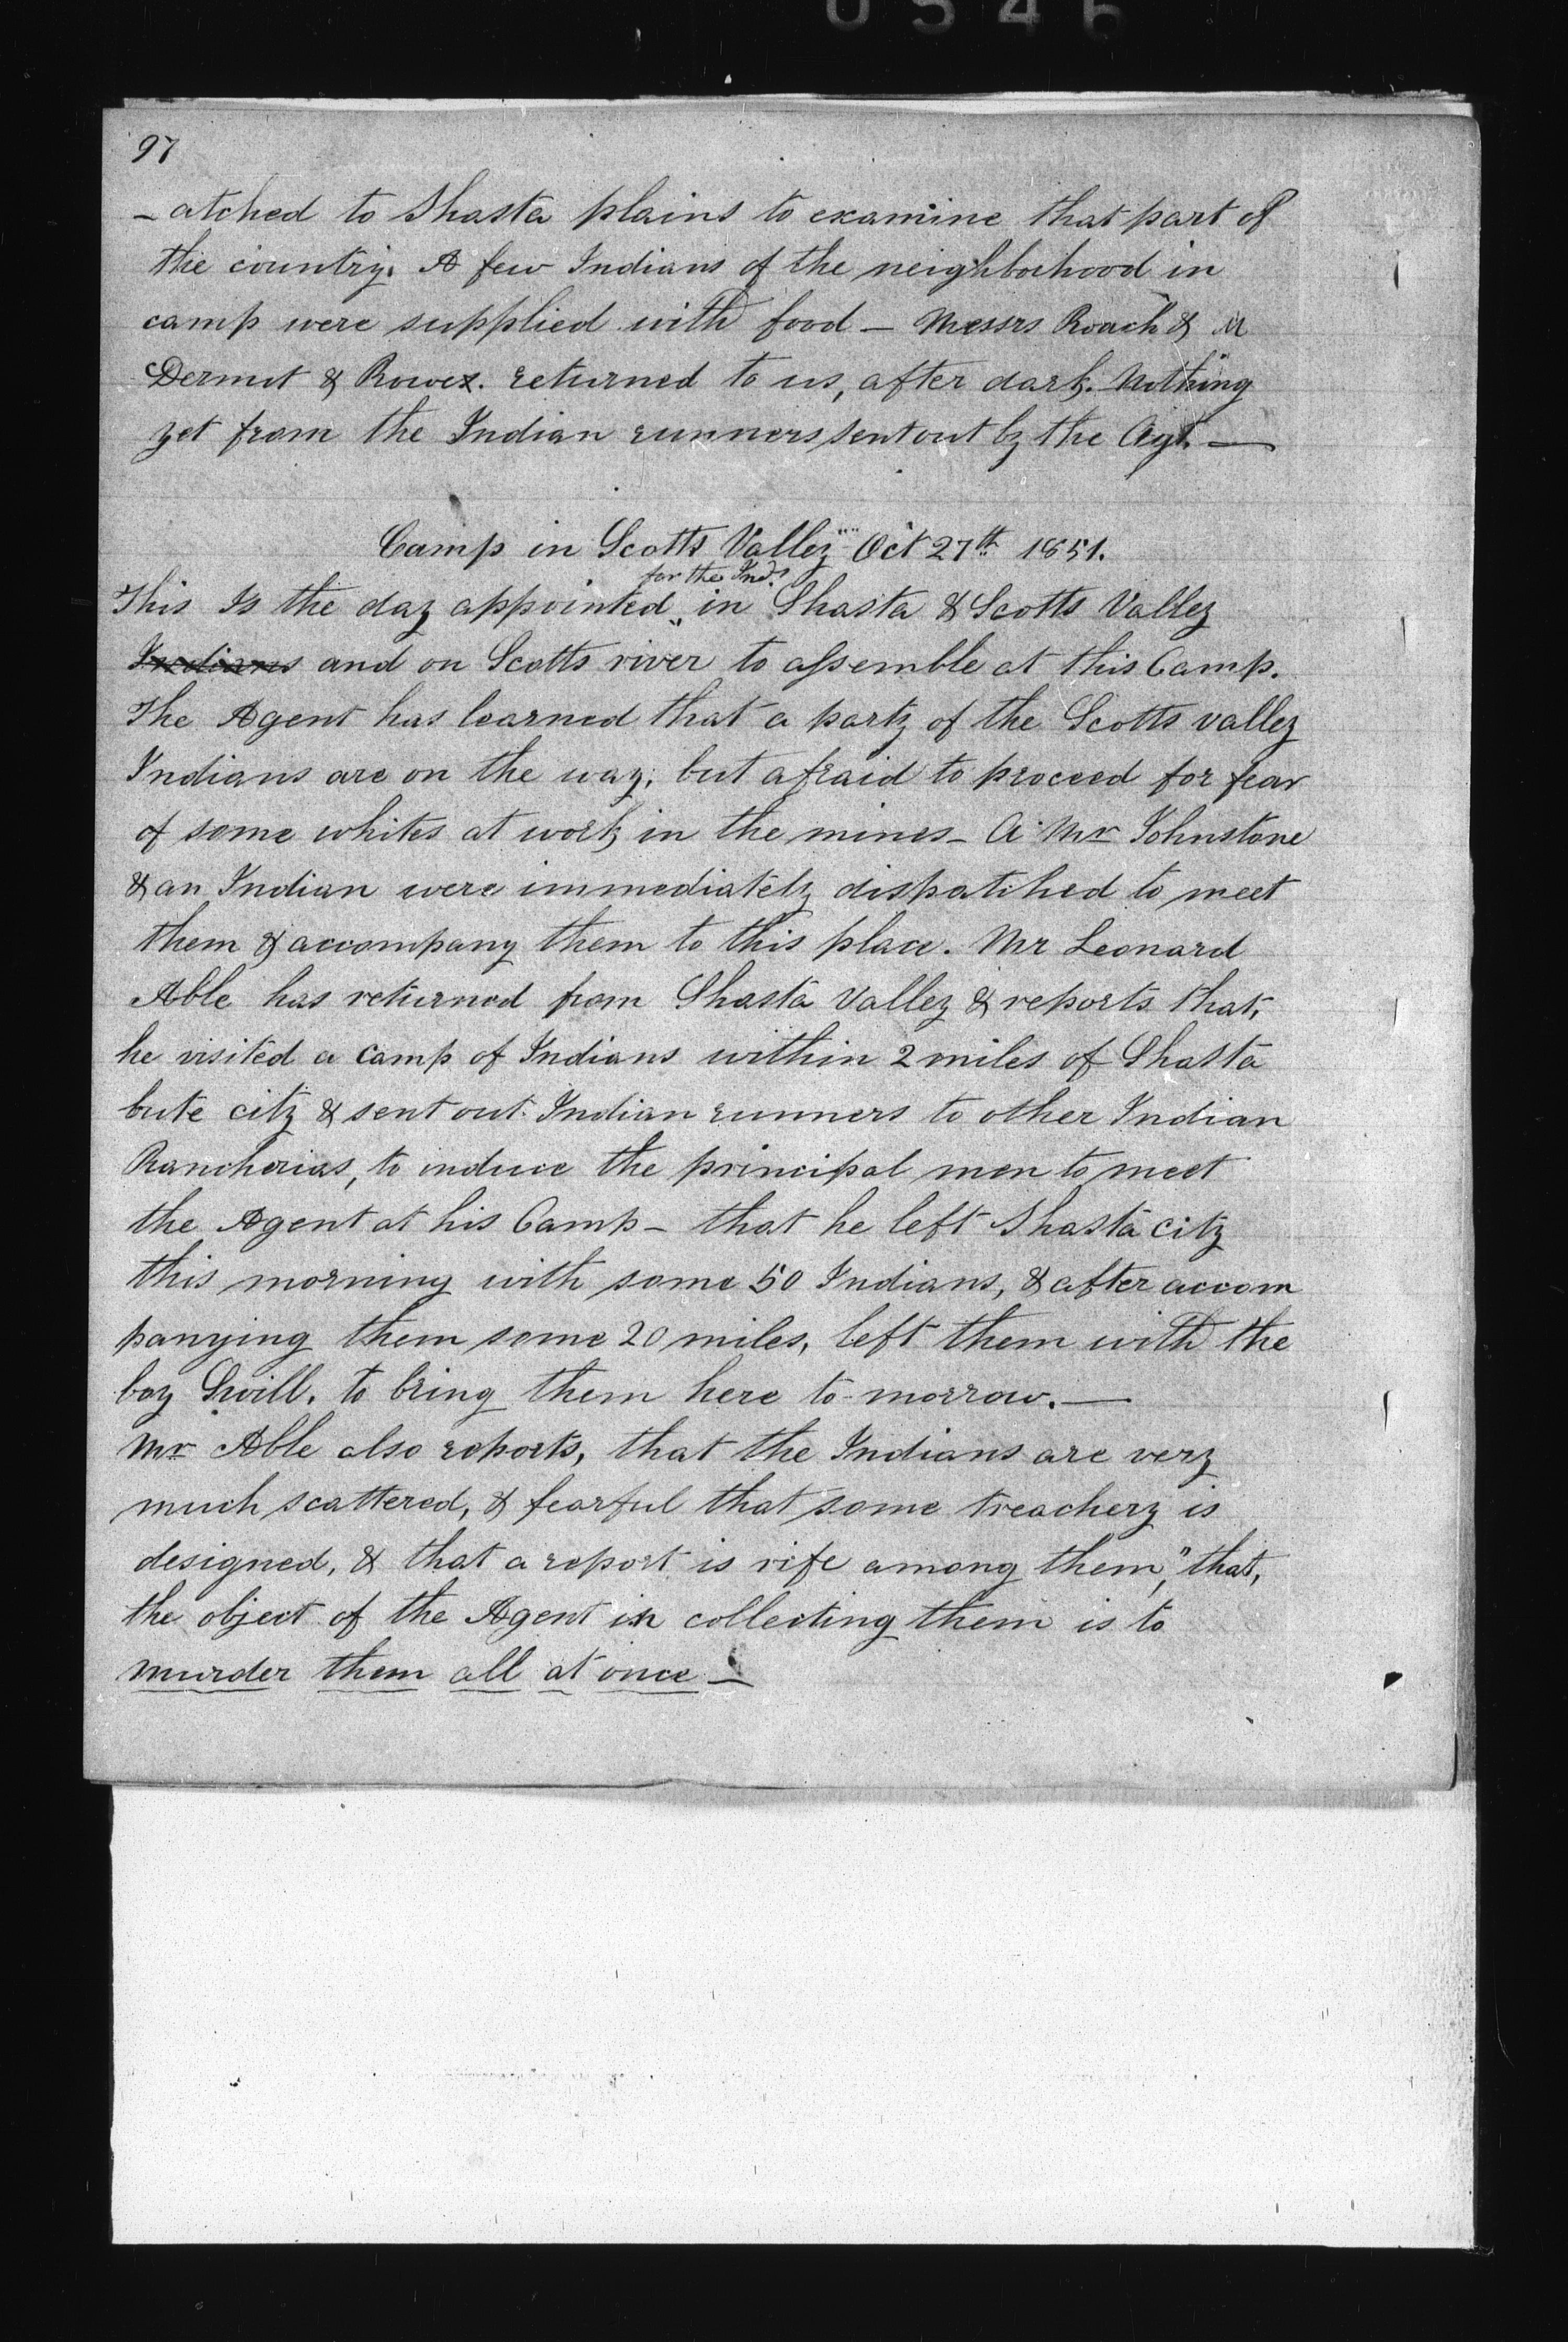 0546
97
- atched to Shasta plains to examine that part of
the country. A few Indians of the neighborhood in
camp were supplied with food — Messrs Roach & M
Dermit & Rowe. returned to us, after dark. Nothing
yet from the Indian runners sent out by the Agt. —
Camp in Scotts Valley Oct 27th 1851.
for the Inds
This Is the day appointed in Shasta & Scotts Valley
Indians and on Scotts river to assemble at this Camp.
The Agent has learned that a party of the Scotts valley
Indians are on the way, but afraid to proceed for fear
of some whites at work in the mines - A Mr Johnstone
& an Indian were immediately dispatched to meet
them & accompany them to this place. Mr Leonard
Able has returned from Shasta Valley & reports that,
he visited a camp of Indians within 2 miles of Shasta
bute city & sent out Indian runners to other Indian
Rancherias, to induce the principal men to meet
the Agent at his Camp - that he left Shasta city
this morning with some 50 Indians, & after accom
panying them some 20 miles, left them with the
boy Swill. to bring them here to-morrow. —
Mr Able also reports, that the Indians are very
much scattered, & fearful that some treachery is
designed, & that a report is rife among them," that,
the object of the Agent in collecting them is to
murder them all at once —